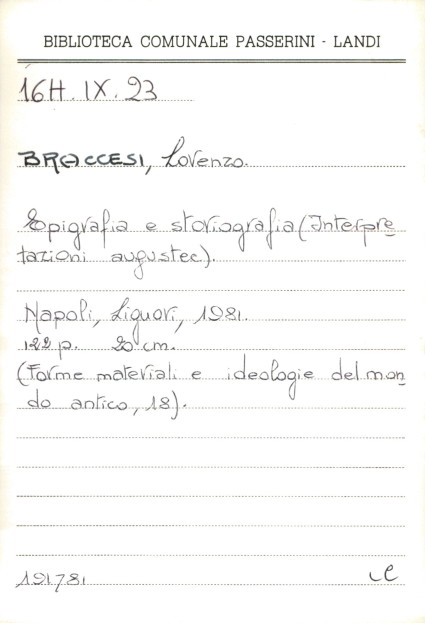 BIBLIOTECA COMUNALE PASSERINI - LANDI
16H. IX. 23
BRACCESI, Lorenzo.
Epigrafia e storiografia (Interpre
tazioni augustee).
Napoli, Liguori, 1981.
122 p. 20 cm.
(Forme materiali e ideologie del mon
do antico, 18).
191781